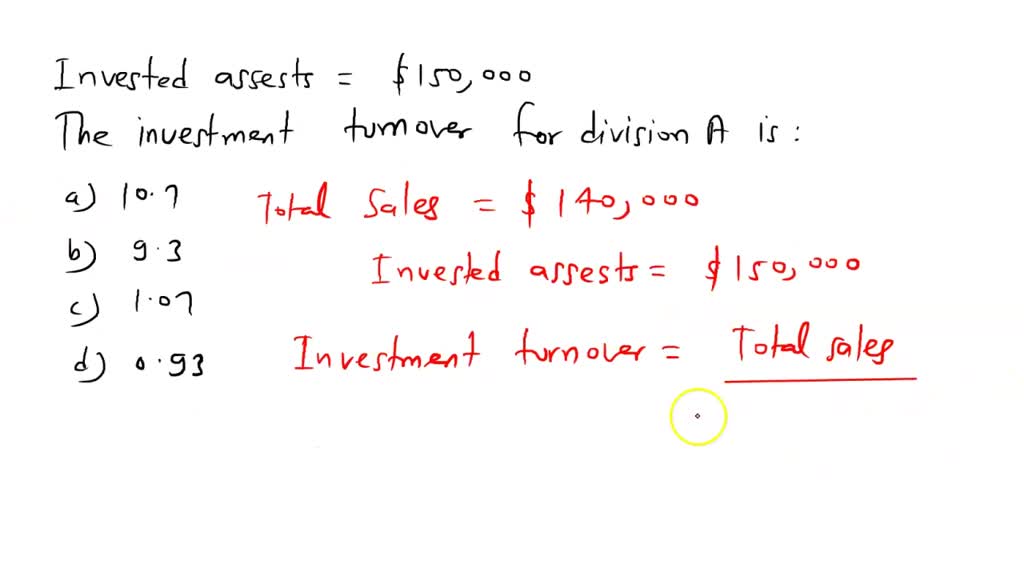 Invested assests = $150,000
The investment turnover for division A is:
a) 10.7
Total Sales = $140,000
b) 9.3
Invested assests = $150,000
c) 1.07
Investment turnover = Total sales
d) 0.93